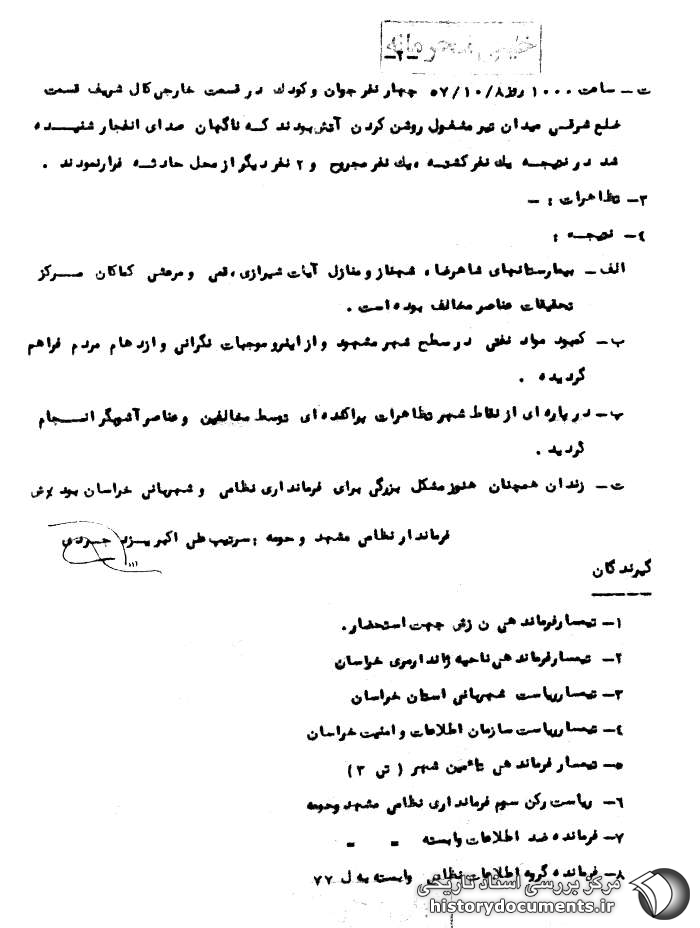 خیلی محرمانه
-۲-
ت- ساعت ۱۰۰۰ روز ۵۷/۱۰/۸ چهار نفر جوان و کودك در قسمت خارجی کال شریف قسمت
ضلع شرقی میدان تیر مشغول روشن کردن آتش بودند که ناگهان صدای انفجار شنیده
شد در نتیجه یك نفر کشته ، یك نفر مجروح و ۲ نفر دیگر از محل حادثه فرار نمودند .
۳- تظاهرات : -
٤- نتیجه :
الف- بیمارستانهای شاهرضا ، شهناز و منازل آیات شیرازی ، قمی و مرعشی کماکان مرکز
تحقیقات عناصر مخالف بوده است .
ب- کمبود مواد نفتی در سطح شهر مشهود و از اینرو موجبات نگرانی و ازدهام مردم فراهم
گردیده .
پ- در پاره ای از نقاط شهر تظاهرات پراکنده ای توسط مخالفین و عناصر آشوبگر انجام
گردید .
ت- زندان همچنان هنوز مشکل بزرگی برای فرمانداری نظامی و شهربانی خراسان بود
فرماندار نظامی مشهد و حومه : سرتیپ علی اکبر یزدجردی
گیرندگان
۱- تیمسار فرماندهی ن زش جهت استحضار.
۲- تیمسار فرماندهی ناحیه ژاندارمری خراسان
۳- تیمسار ریاست شهربانی استان خراسان
٤- تیمسار ریاست سازمان اطلاعات و امنیت خراسان
۵- تیمسار فرماندهی تامین شهر ( تی ۳ )
۶- ریاست رکن سوم فرمانداری نظامی مشهد و حومه
۷- فرمانده ضد اطلاعات وابسته " "
۸- فرمانده گروه اطلاعات نظامی وابسته به ل ۷۷
مرکز بررسی اسناد تاریخی
historydocuments.ir